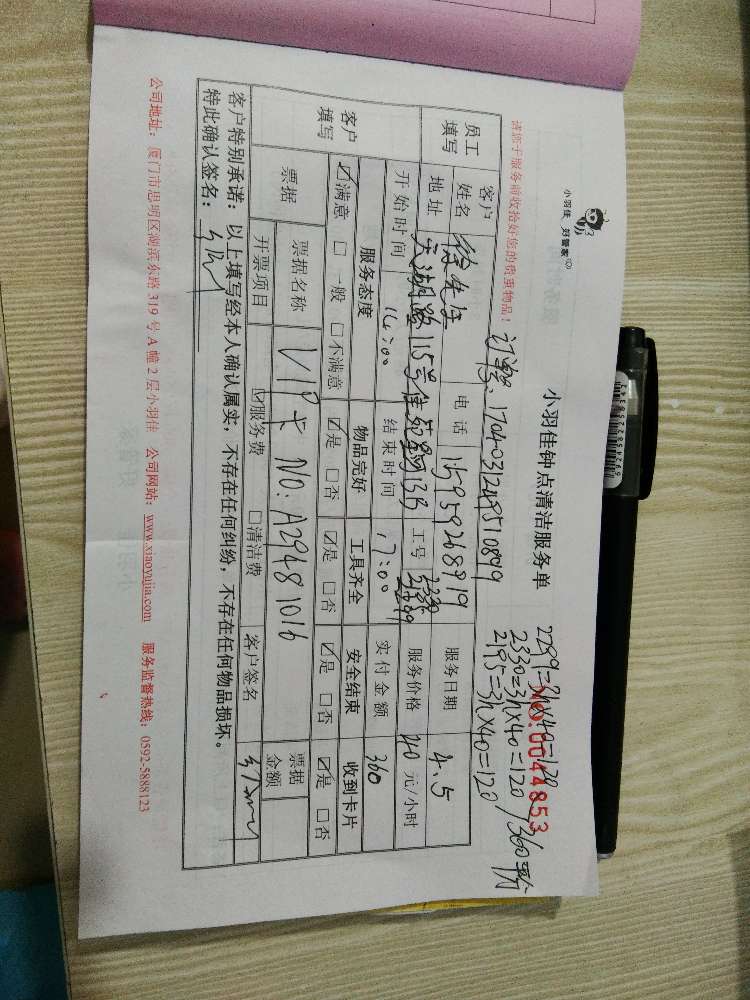 小羽佳 好管家
小羽佳钟点清洁服务单
NO.0044853
2299=3h×40=120
2330=3h×40=120
2195=3h×40=120
请您于服务前收拾好您的贵重物品！
订单号：
员工填写
客户姓名 徐先生 电话 15959268919 服务日期 4.5
地址 天湖路115号佳苑 13B 工号 2330 2195 2299 服务价格 40 元/小时
开始时间 14:00 结束时间 17:00 实付金额 360
客户填写
服务态度 物品完好 工具齐全 安全结束 收到卡片
☑满意 □一般 □不满意 ☑是 □否 ☑是 □否 ☑是 □否 ☑是 □否
票据
票据名称 VIP卡 NO: A29481016 票据金额
开票项目 ☑服务费 □清洁费 客户签名
客户特别承诺：以上填写经本人确认属实，不存在任何纠纷，不存在任何物品损坏。
特此确认签名：
公司地址：厦门市思明区湖滨东路 319 号 A 幢 2 层小羽佳 公司网站：www.xiaoyujia.com 服务监督热线：0592-5888123